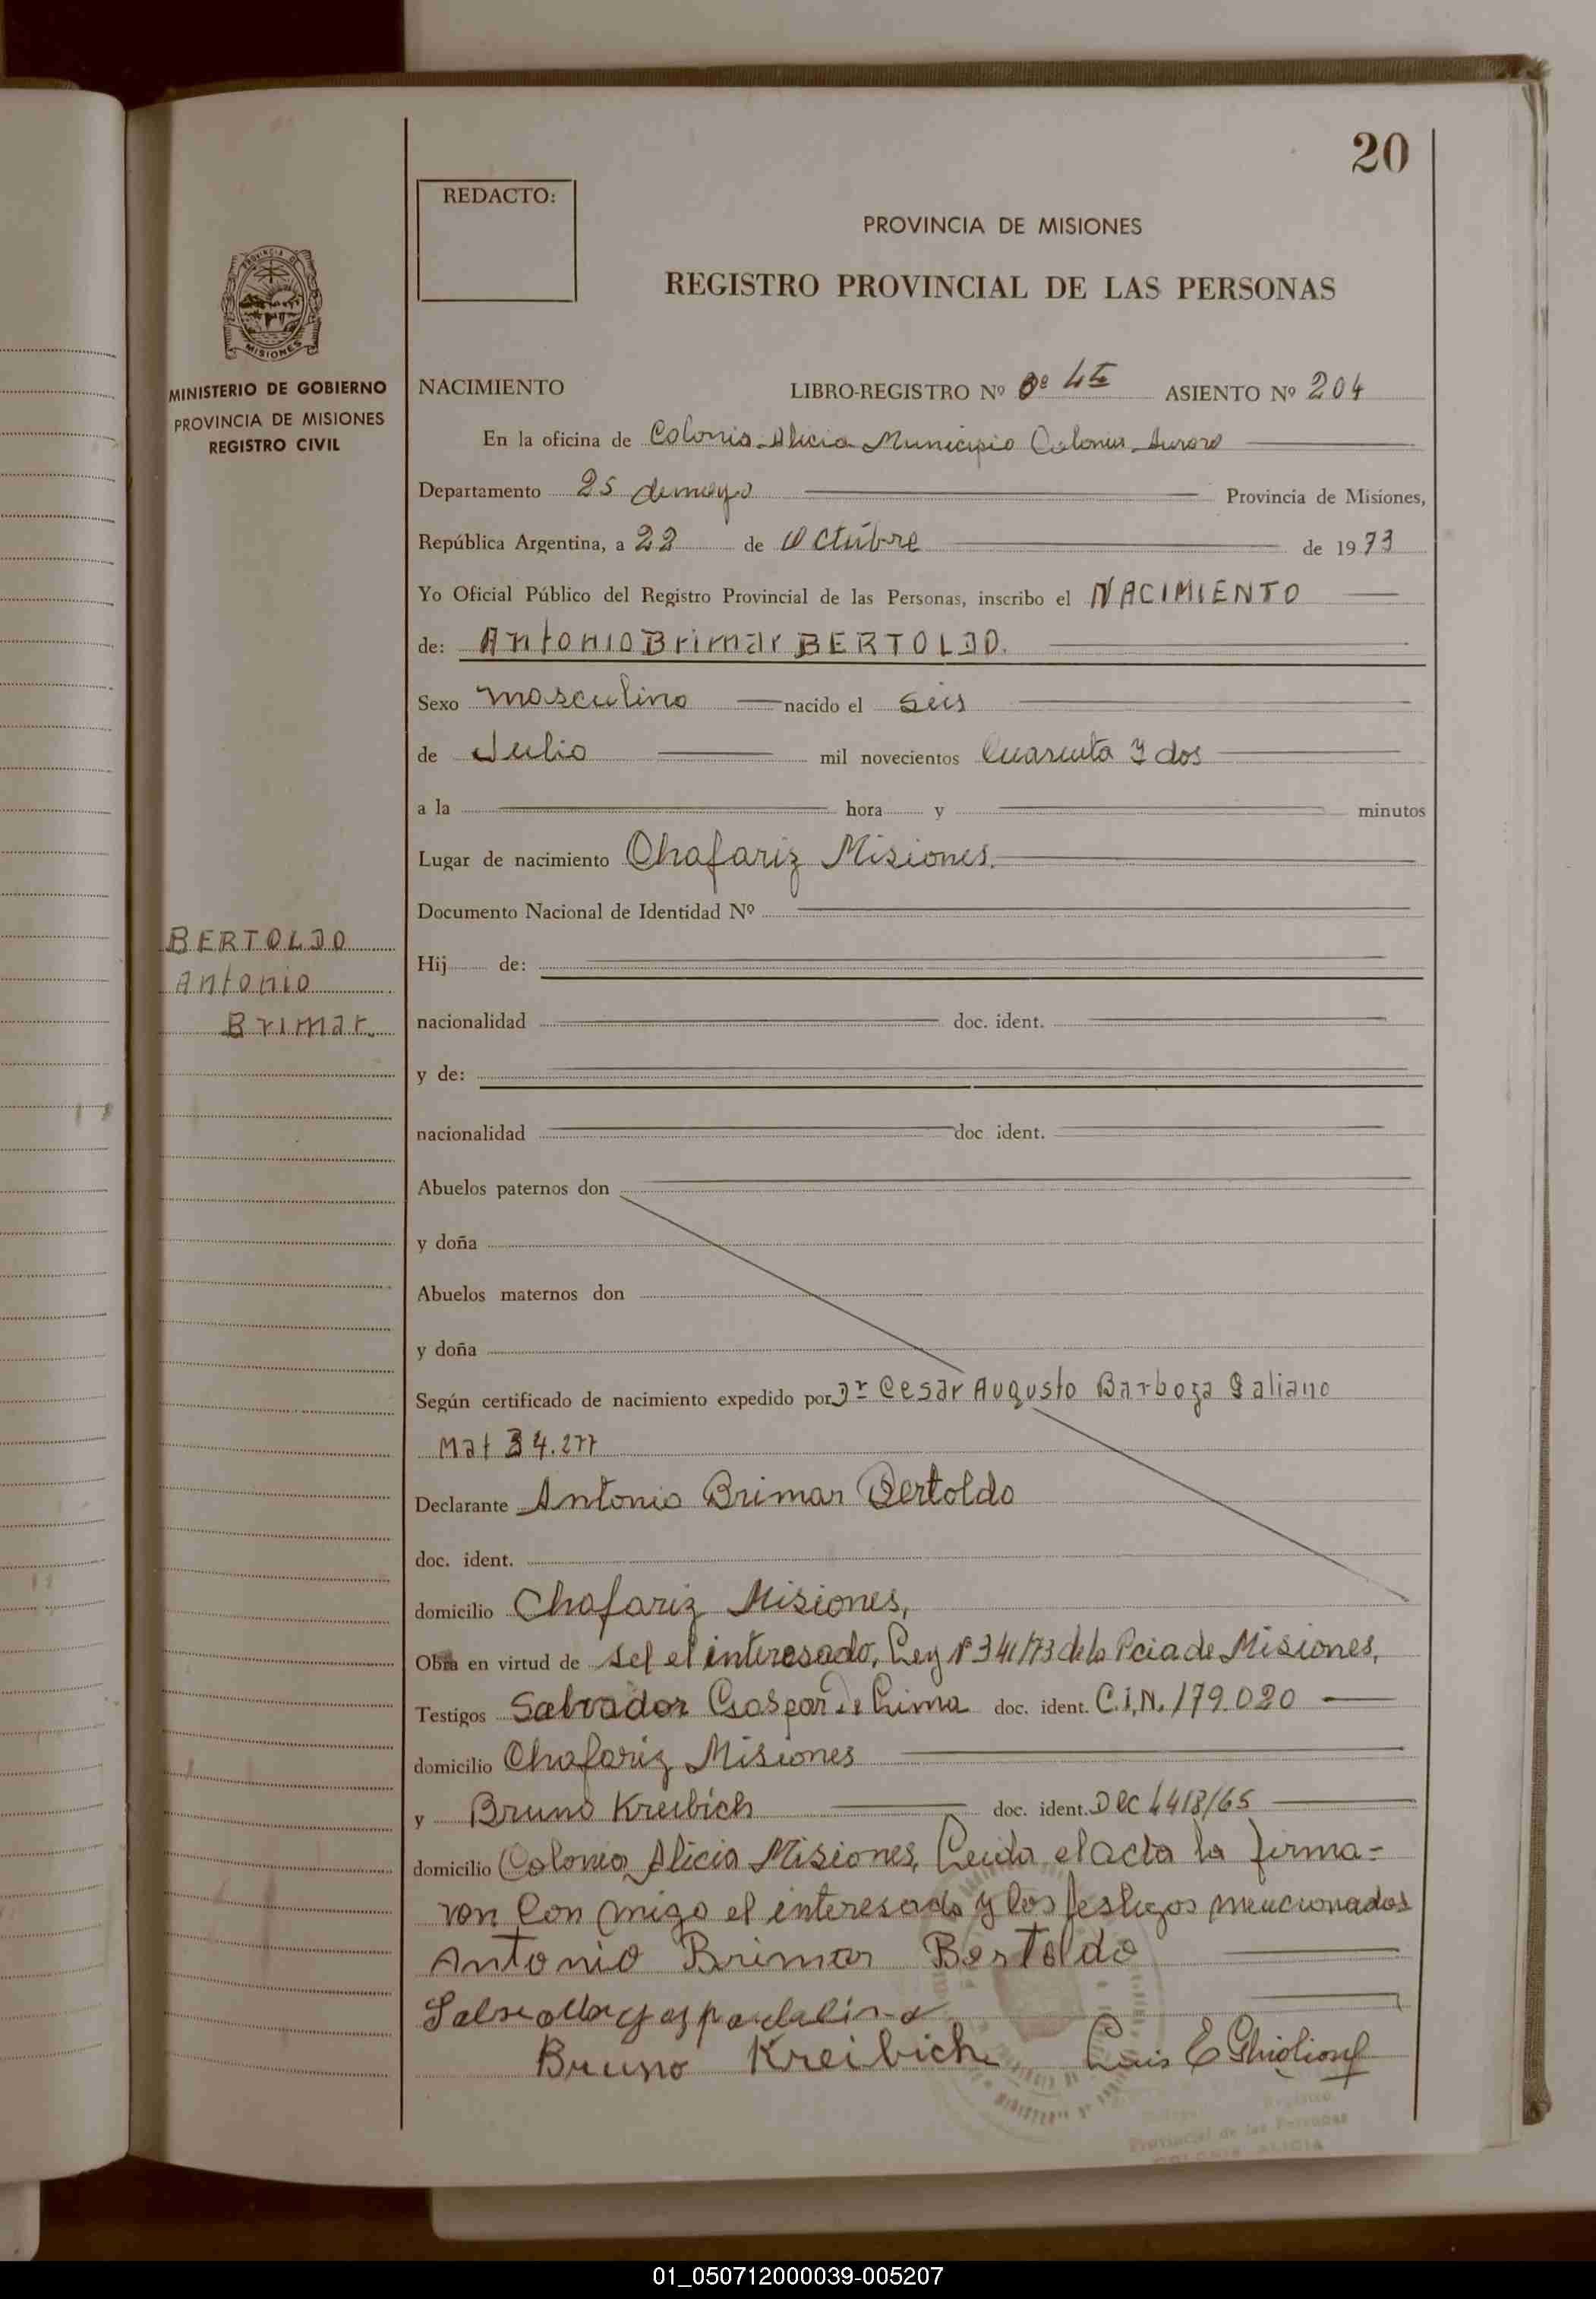 20
REDACTO:
PROVINCIA DE MISIONES
REGISTRO PROVINCIAL DE LAS PERSONAS
PROVINCIA DE
MISIONES
MINISTERIO DE GOBIERNO
PROVINCIA DE MISIONES
REGISTRO CIVIL
NACIMIENTO LIBRO-REGISTRO Nº ASIENTO Nº 204
En la oficina de Colonia Alicia Municipio Colonia Aurora
Departamento 25 de mayo Provincia de Misiones,
República Argentina, a 22 de Octubre de 1973
Yo Oficial Público del Registro Provincial de las Personas, inscribo el NACIMIENTO
de: Antonio Brimar BERTOLDO.
Sexo masculino nacido el seis
de Julio mil novecientos Cuarenta y dos
a la hora y minutos
Lugar de nacimiento Chafariz Misiones.
Documento Nacional de Identidad Nº
BERTOLDO
Antonio
Brimar.
Hij de:
nacionalidad doc. ident.
y de:
nacionalidad doc ident.
Abuelos paternos don
y doña
Abuelos maternos don
y doña
Según certificado de nacimiento expedido por Dr Cesar Augusto Barboza Galiano
Mat 34.277
Declarante Antonio Brimar Bertoldo
doc. ident.
domicilio Chafariz Misiones,
Obra en virtud de sel el interesado, Ley Nº 341/73 de la Pcia de Misiones,
Testigos Salvador Gaspar De Lima doc. ident. C.I.N. 179.020
domicilio Chafariz Misiones
y Bruno Kreibich doc. ident. DEC 4418/65
domicilio Colonia Alicia Misiones, Leida el acta la firma=
ron Con migo el interesado y los testigos mencionados
Antonio Brimar Bertoldo
Bruno Kreibich Luis E Ghiolionf
Provincial de las Personas
COLONIA ALICIA
01_050712000039-005207